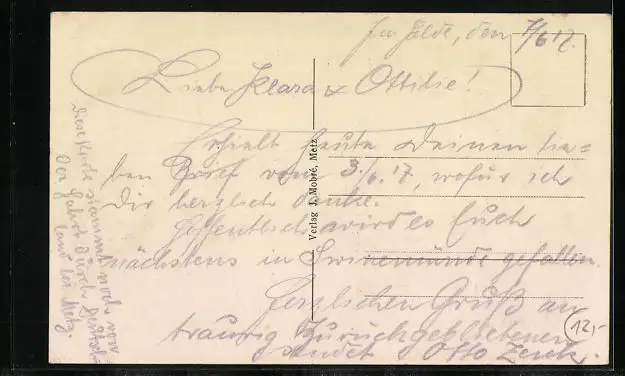 Im Felde, den 7/6 17.
Liebe Klara & Ottilie!
Erhielt heute Deinen lie=
ben Brief vom 3./6. 17, wofür ich
Dir herzlich danke.
Hoffentlich wird es Euch
nächstens in Swinemünde gefallen.
Herzlichen Gruß an
traurig Zurückgebliebenen
sendet Otto
Diese Karte stammt noch von
der Fahrt durch Deutsch=
land bis Metz.
Verlag J. Mobré, Metz
12,-